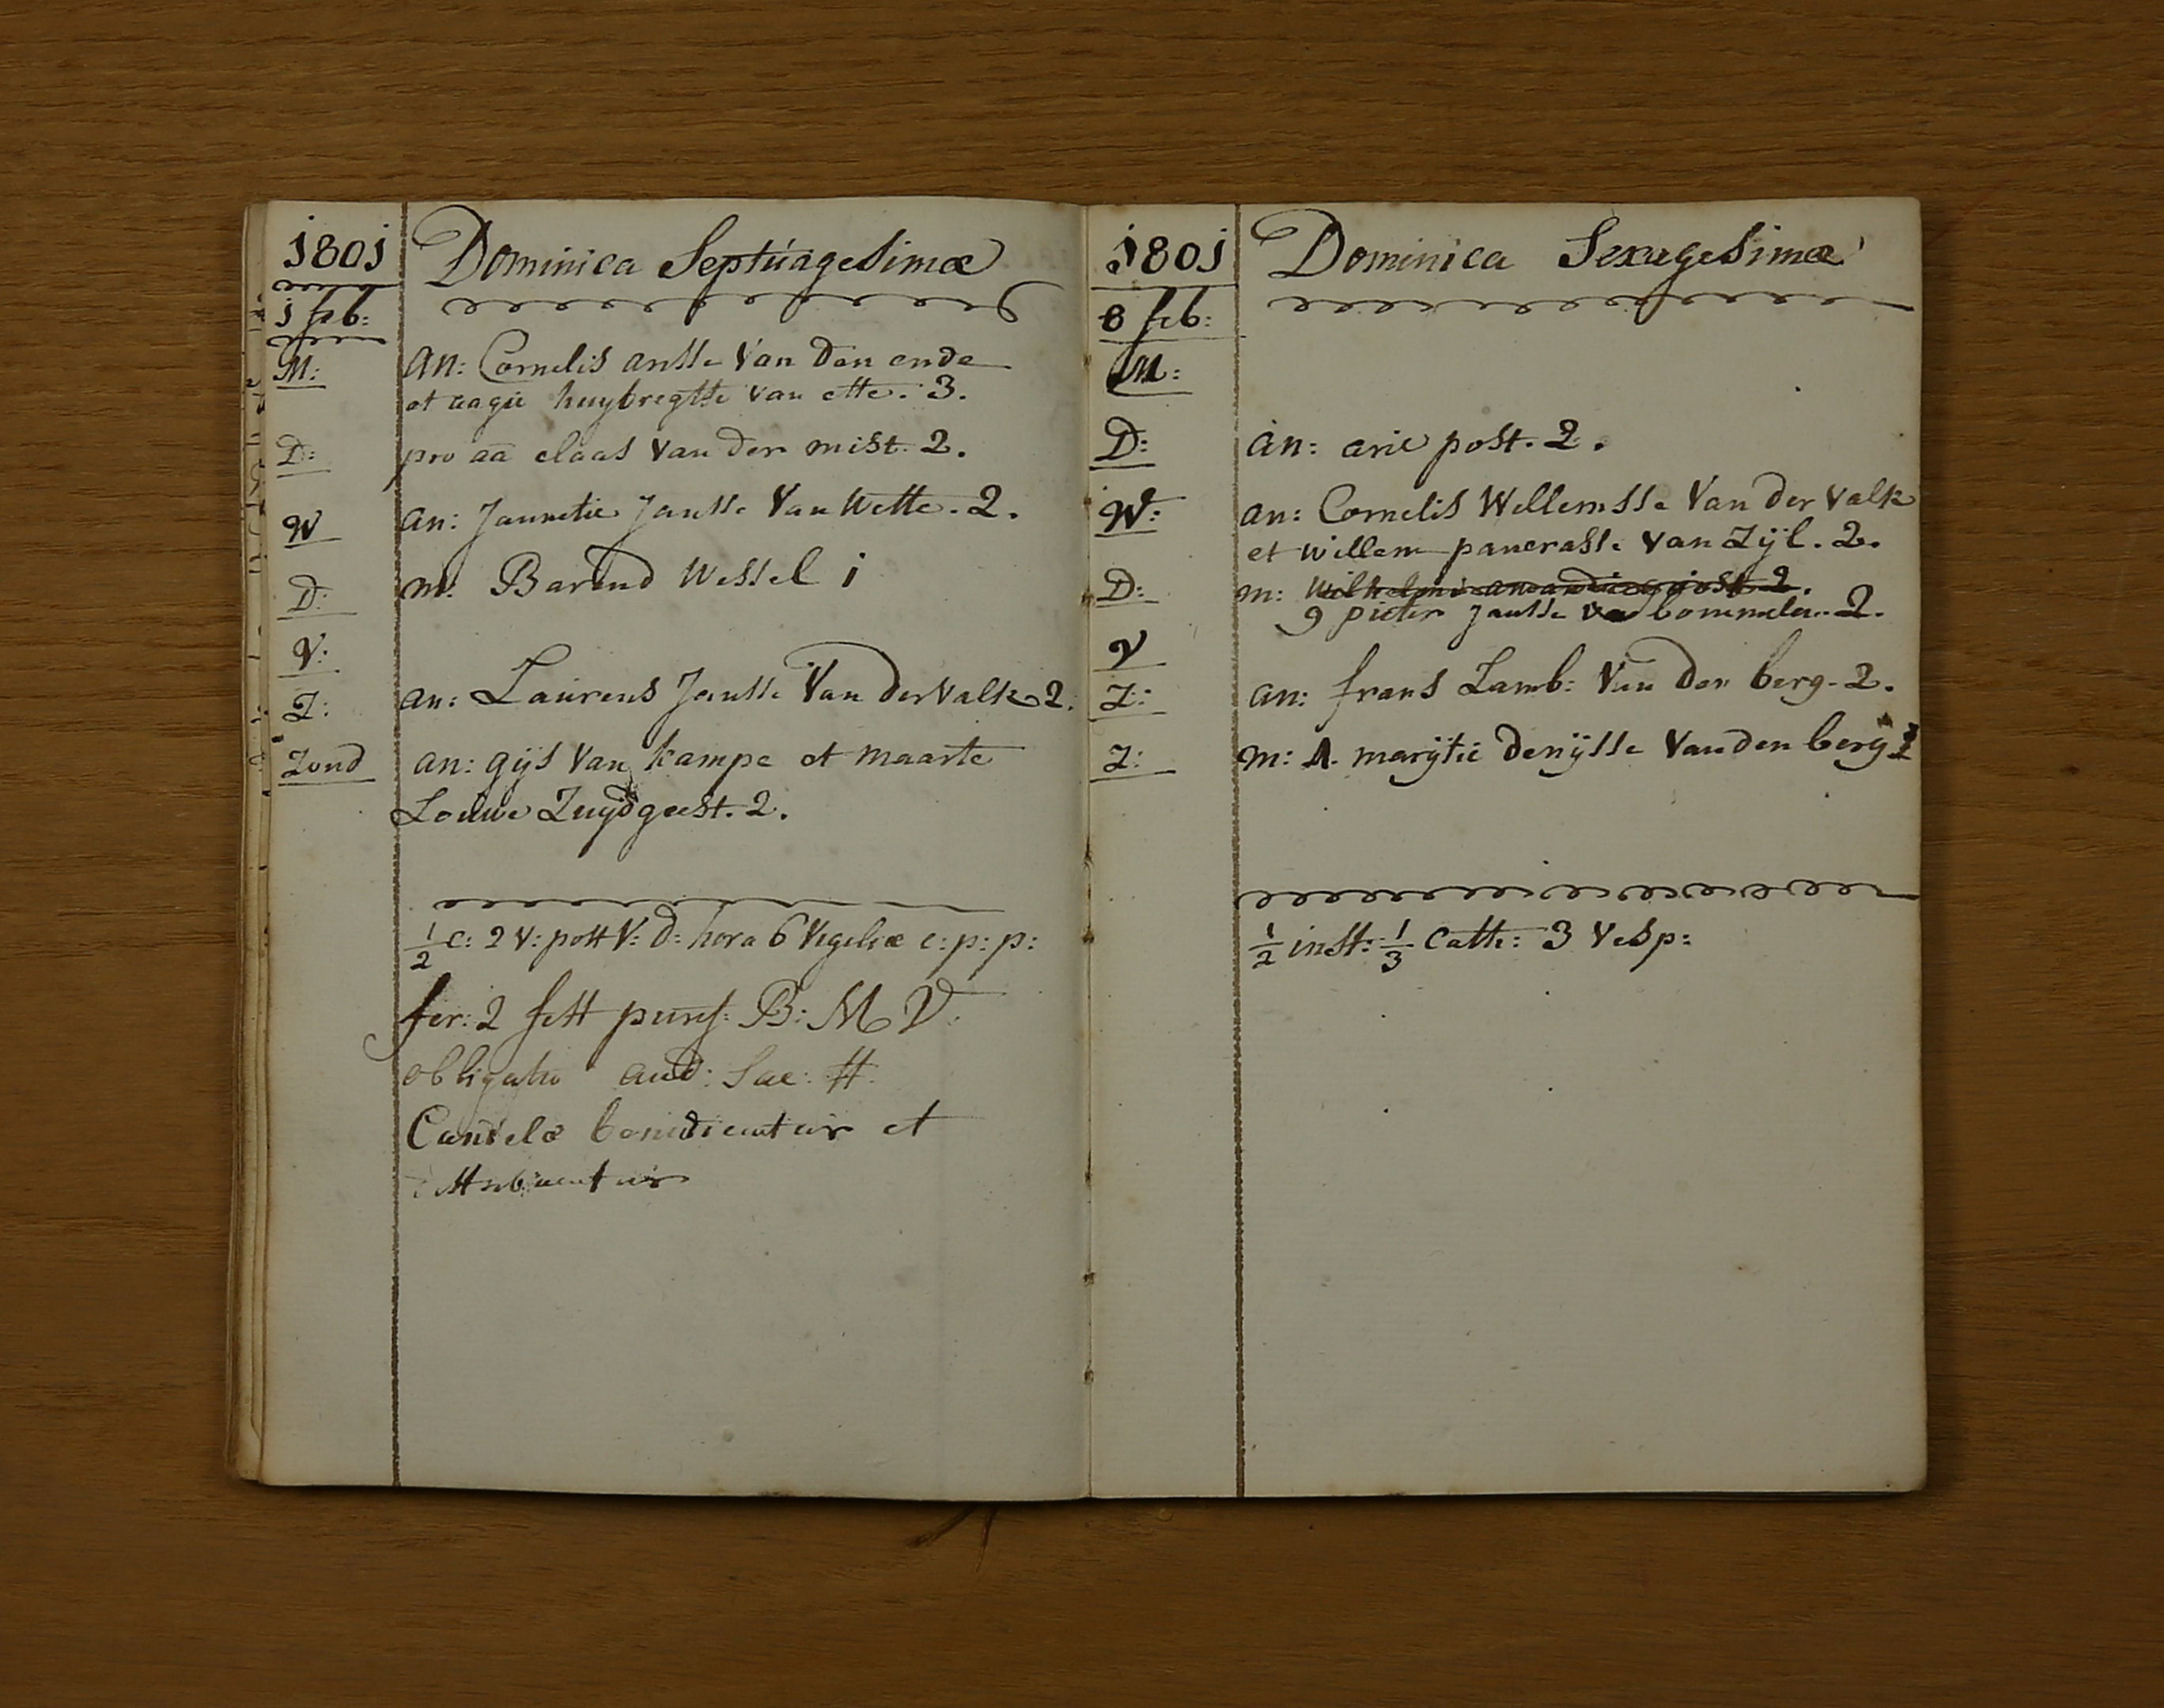 1801 Dominica Septuagesimæ
1 feb:
M: an: Cornelis ansse Van den ende
et aagie huybregtsse van ette. 3.
D: pro aa claas Van der mist. 2.
W an: Jannetie Jansse Van Wette. 2.
D: m: Barend Wessel 1
V:
Z: an: Laurens Jansse Van der Valk 2.
Zond an: gijs Van kampe et maarte
Louwe Zuydgeest. 2.
1/2 c: 2 V: post V: d: hora 6 Vigeliæ c: p: p:
fer: 2 fest purif: B: M V:
obligatio aud: Sac: #
Candelæ benedicentur et
distribuentur
1801 Dominica Sexagesimæ
8 feb:
M:
D: an: arie post. 2.
W: an: Cornelis Willemsse Van der Valk
et willem pancrasse van Zijl. 2.
D: m: post 2.
9 pieter Jansse bommelen. 2.
V
Z: an: frans Lamb: Van den berg. 2.
Z: m: 1. marijtie denijsse Van den berg
1/2 inst: 1/3 Cath: 3 Vesp: